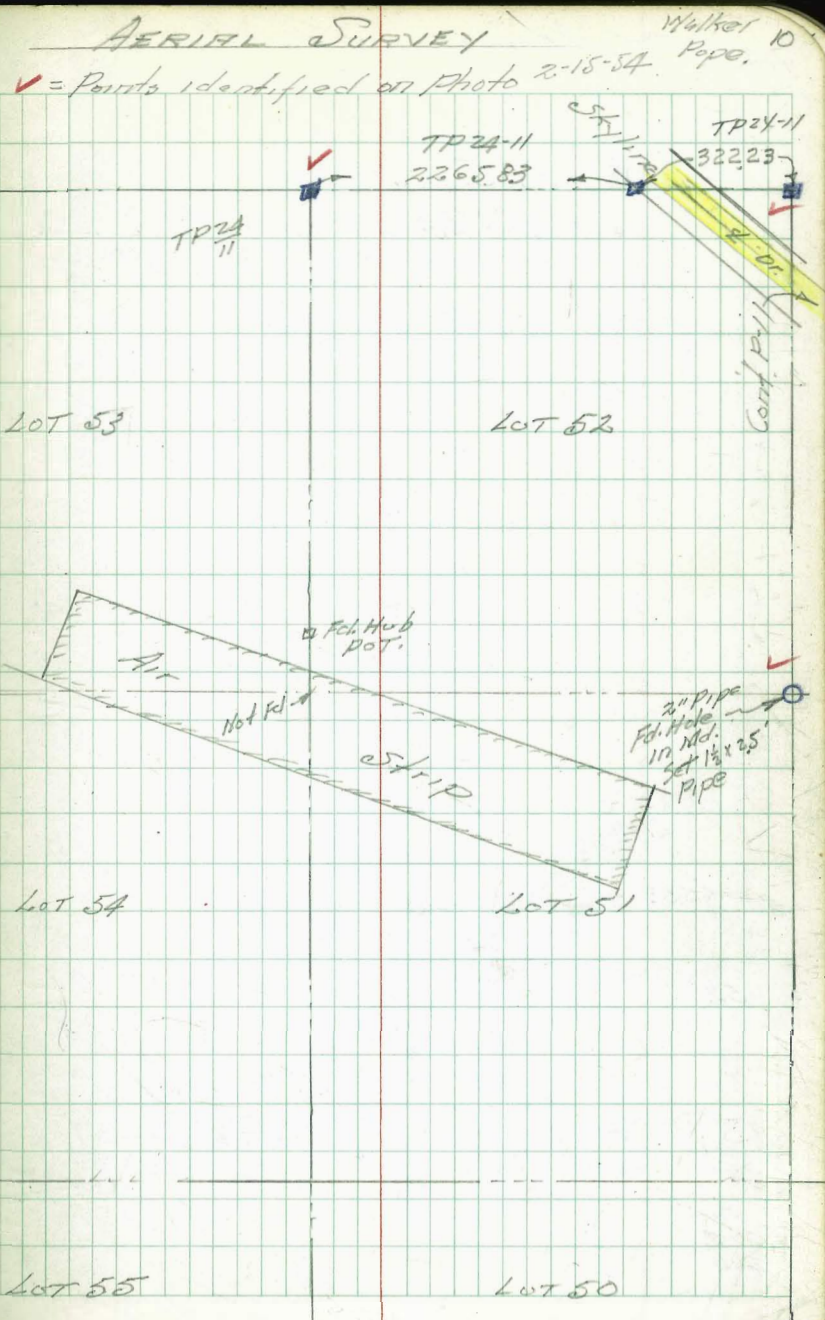 AERIAL SURVEY
Walker
Pope.
10
✓ = Points identified on Photo 2-15-54
TP24-11
2265.83
Skyline
TP24-11
322.23
TP 24/11
Dr.
Cont P-11
LOT 53
LOT 52
Fd. Hub
P.O.T.
Air
Not Fd
Strip
2" Pipe
Fd. Hole
in Md.
Set 1½ x 25"
Pipe
LOT 54
LOT 51
LOT 55
LOT 50